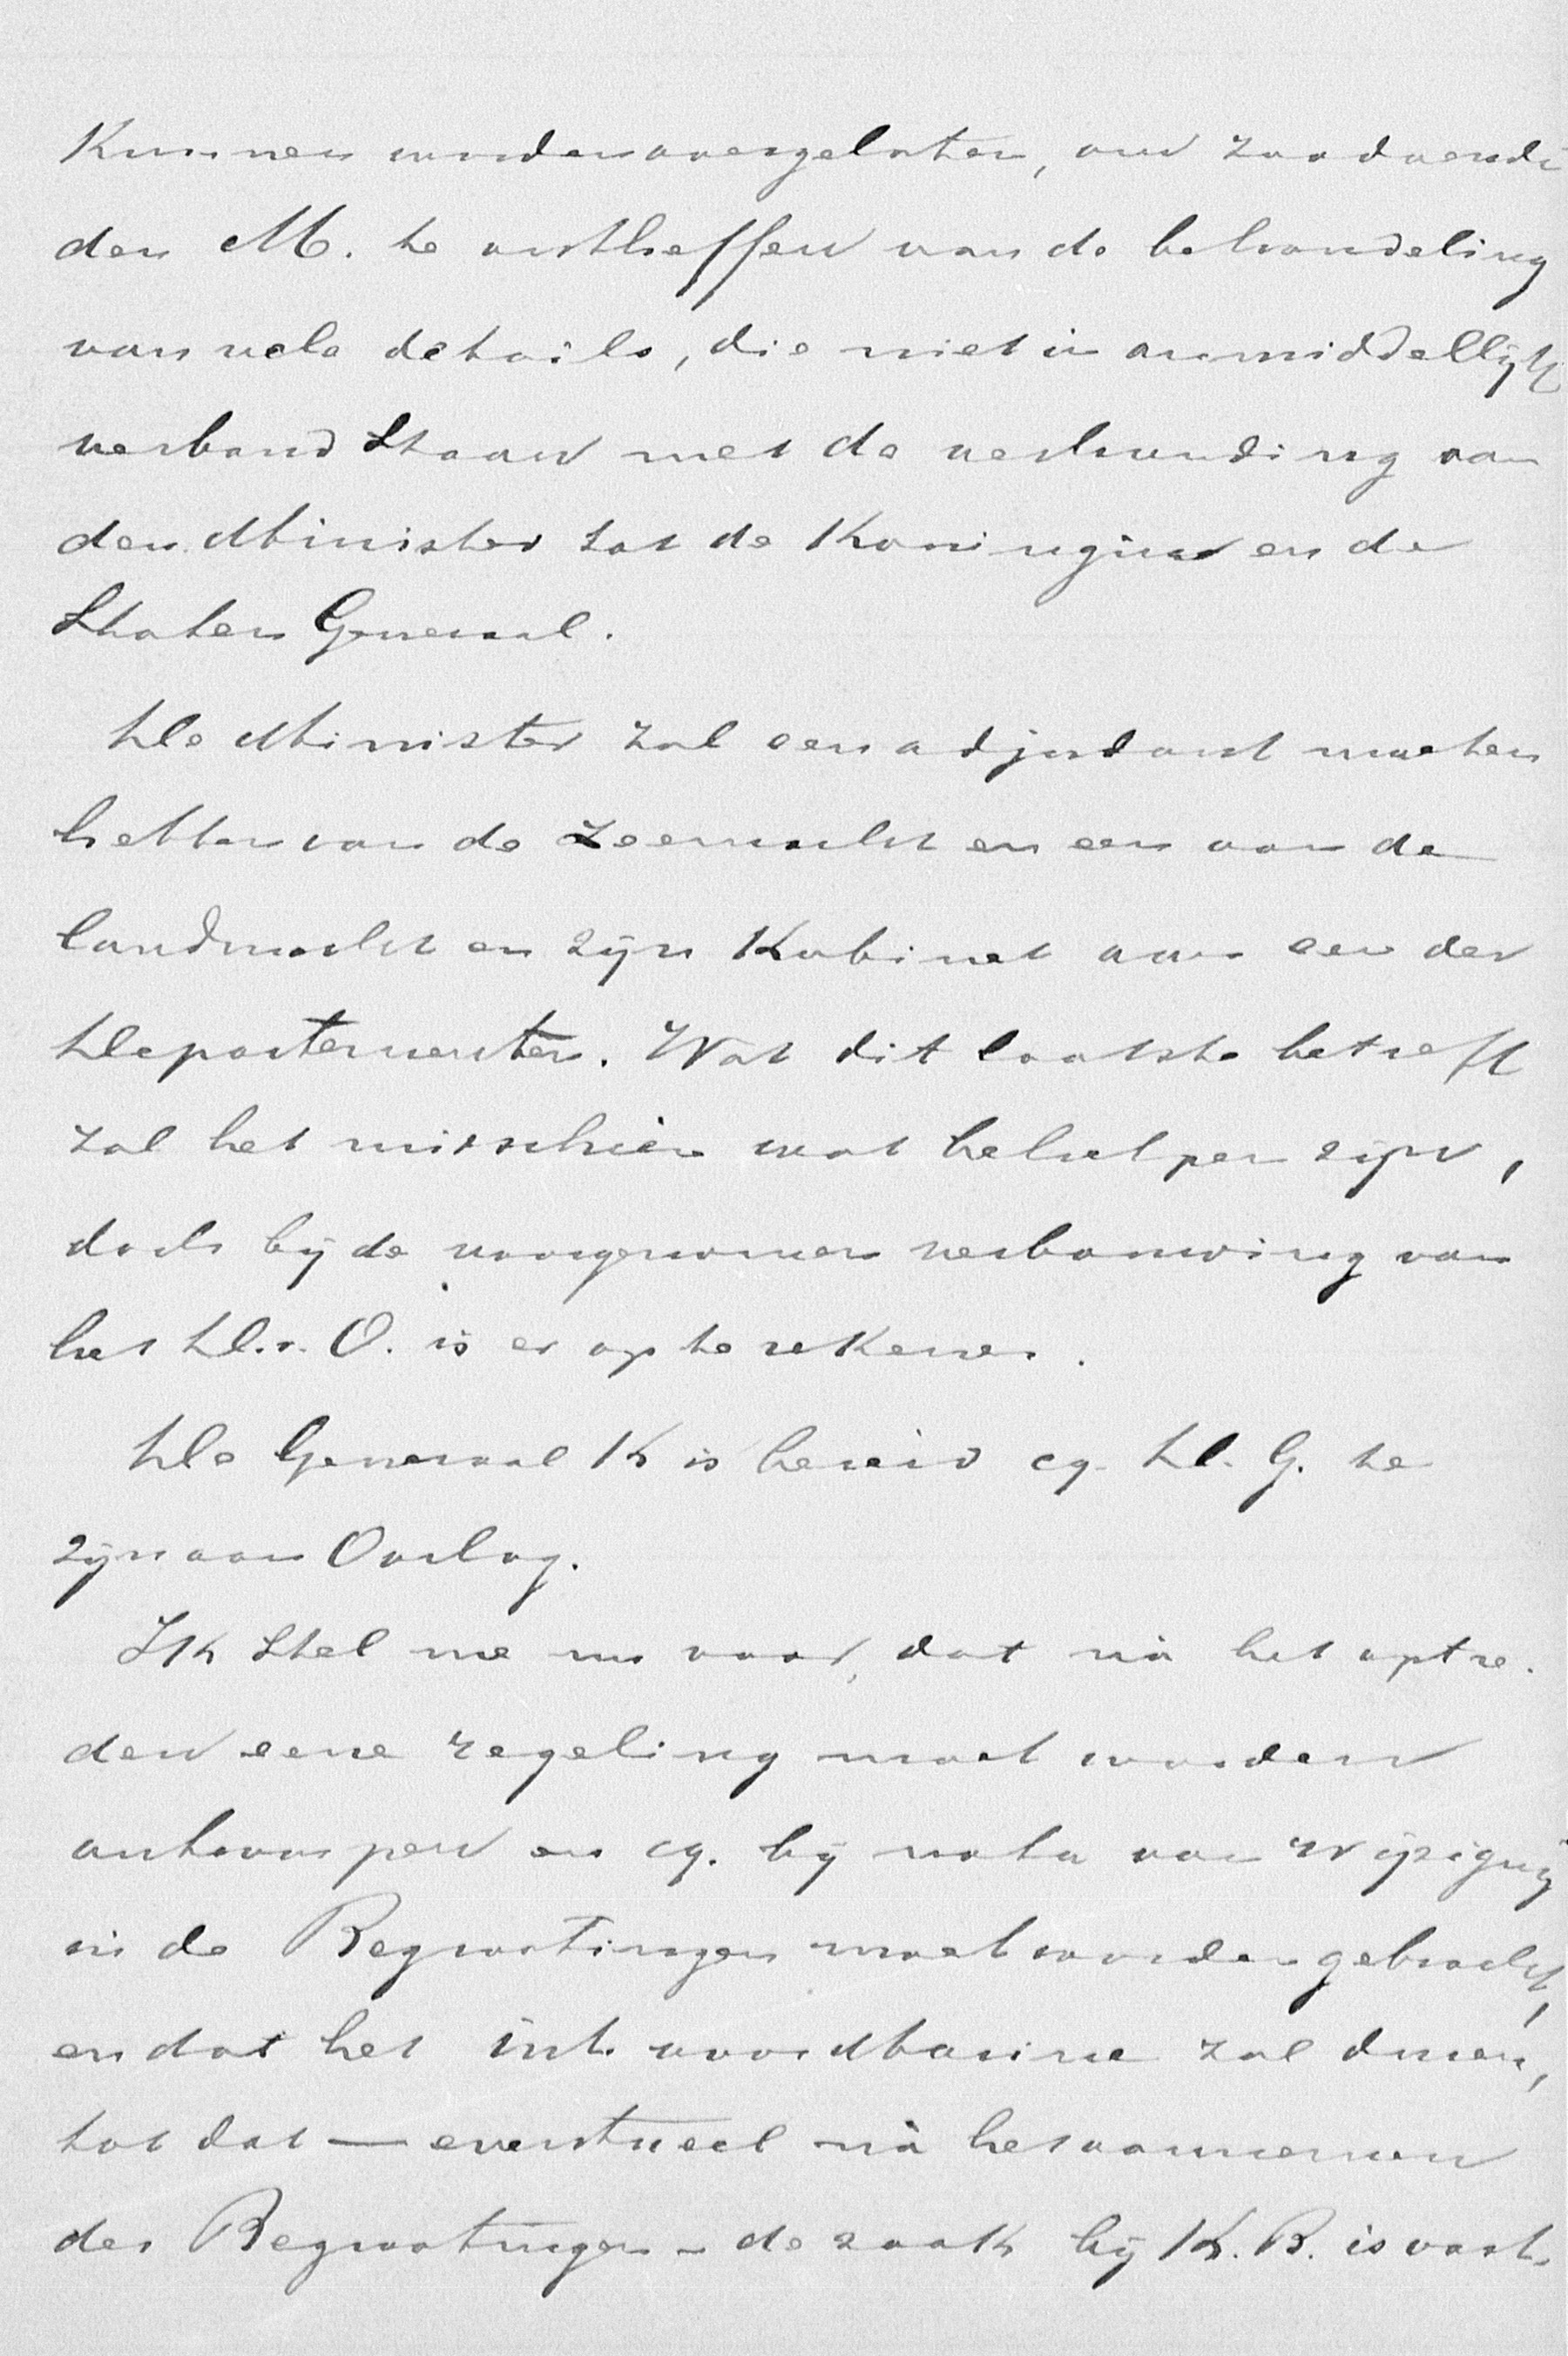 Kunnen worden overgelaten, om zoodoende
den M. te ontheffen van de behandeling
van vele details, die niet in onmiddellijk
verband staan met de verhouding van
den Minister tot de Koningin en de
Staten Generaal.
De Minister zal een adjudant moeten
hebben van de Zeemacht en een van de
landmacht en zijn Kabinet aan een der
Departementen. Wat dit laatste betreft
zal het misschien wat behelpen zijn,
doch bij de voorgenomen verbouwing van
het D.v.O. is er op te rekenen.
De Generaal K is bereid cq. D.G. te
zijn aan Oorlog.
Ik stel me nu voor, dat ná het optre-
den eene regeling moet worden
ontworpen en cq. bij nota van wijziging
in de Begrootingen moet worden gebracht,
en dat het int. voor Marine zal duren,
tot dat — eventueel ná het aannemen
der Begrootingen - de zaak bij K.B. is vast-